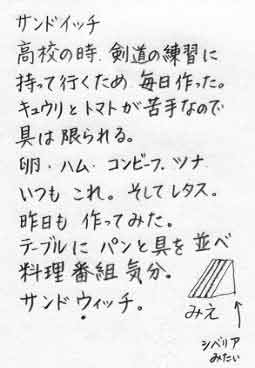 サンドイッチ
高校の時、剣道の練習に
持って行くため 毎日作った。
キュウリとトマトが苦手なので
具は限られる。
卵・ハム・コンビーフ、ツナ
いつも これ。そしてレタス。
昨日も 作ってみた。
テーブルに パンと具を並べ
料理番組気分。
サンドウィッチ。
みえ
シベリア
みたい